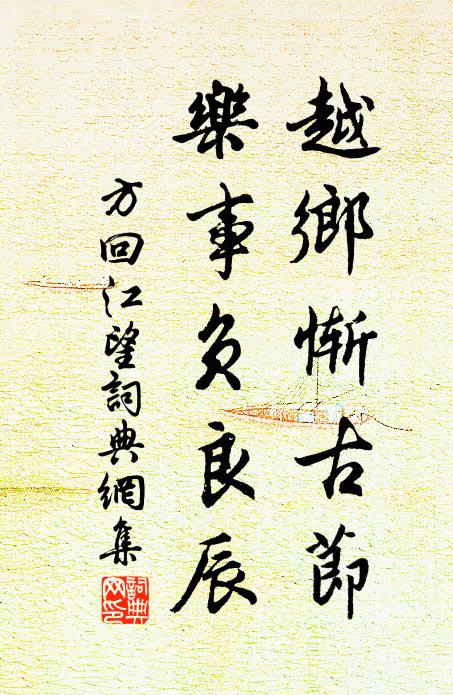 越鄉慚古節
樂事負良辰
方回江望詞典網集
詞典网印